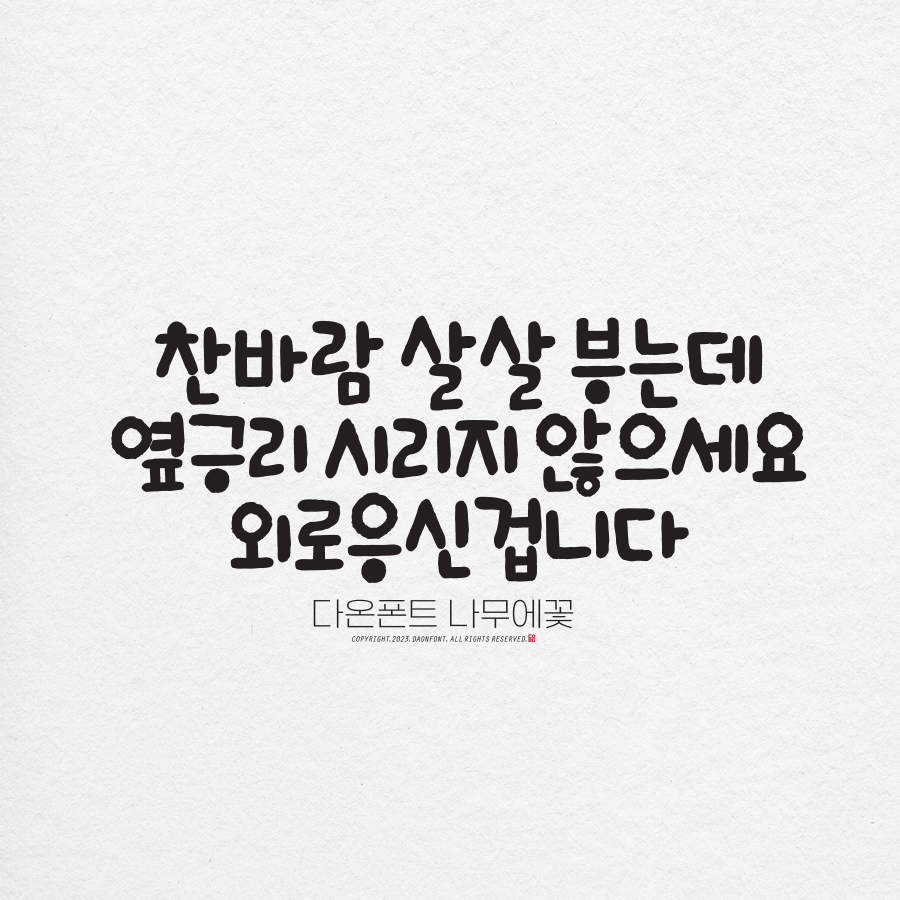 찬바람 살살 부는데
옆구리 시리지 않으세요
외로우신겁니다
다온폰트 나무에꽃
COPYRIGHT.2023. DAONFONT. ALL RIGHTS RESERVED.